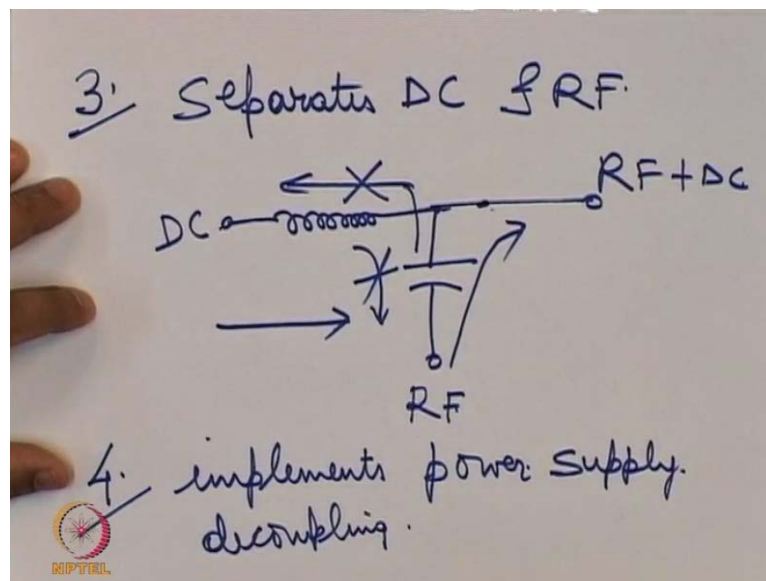 3. Separates DC & RF.
RF + DC
DC
RF
4. implements power supply.
decoupling.
NPTEL